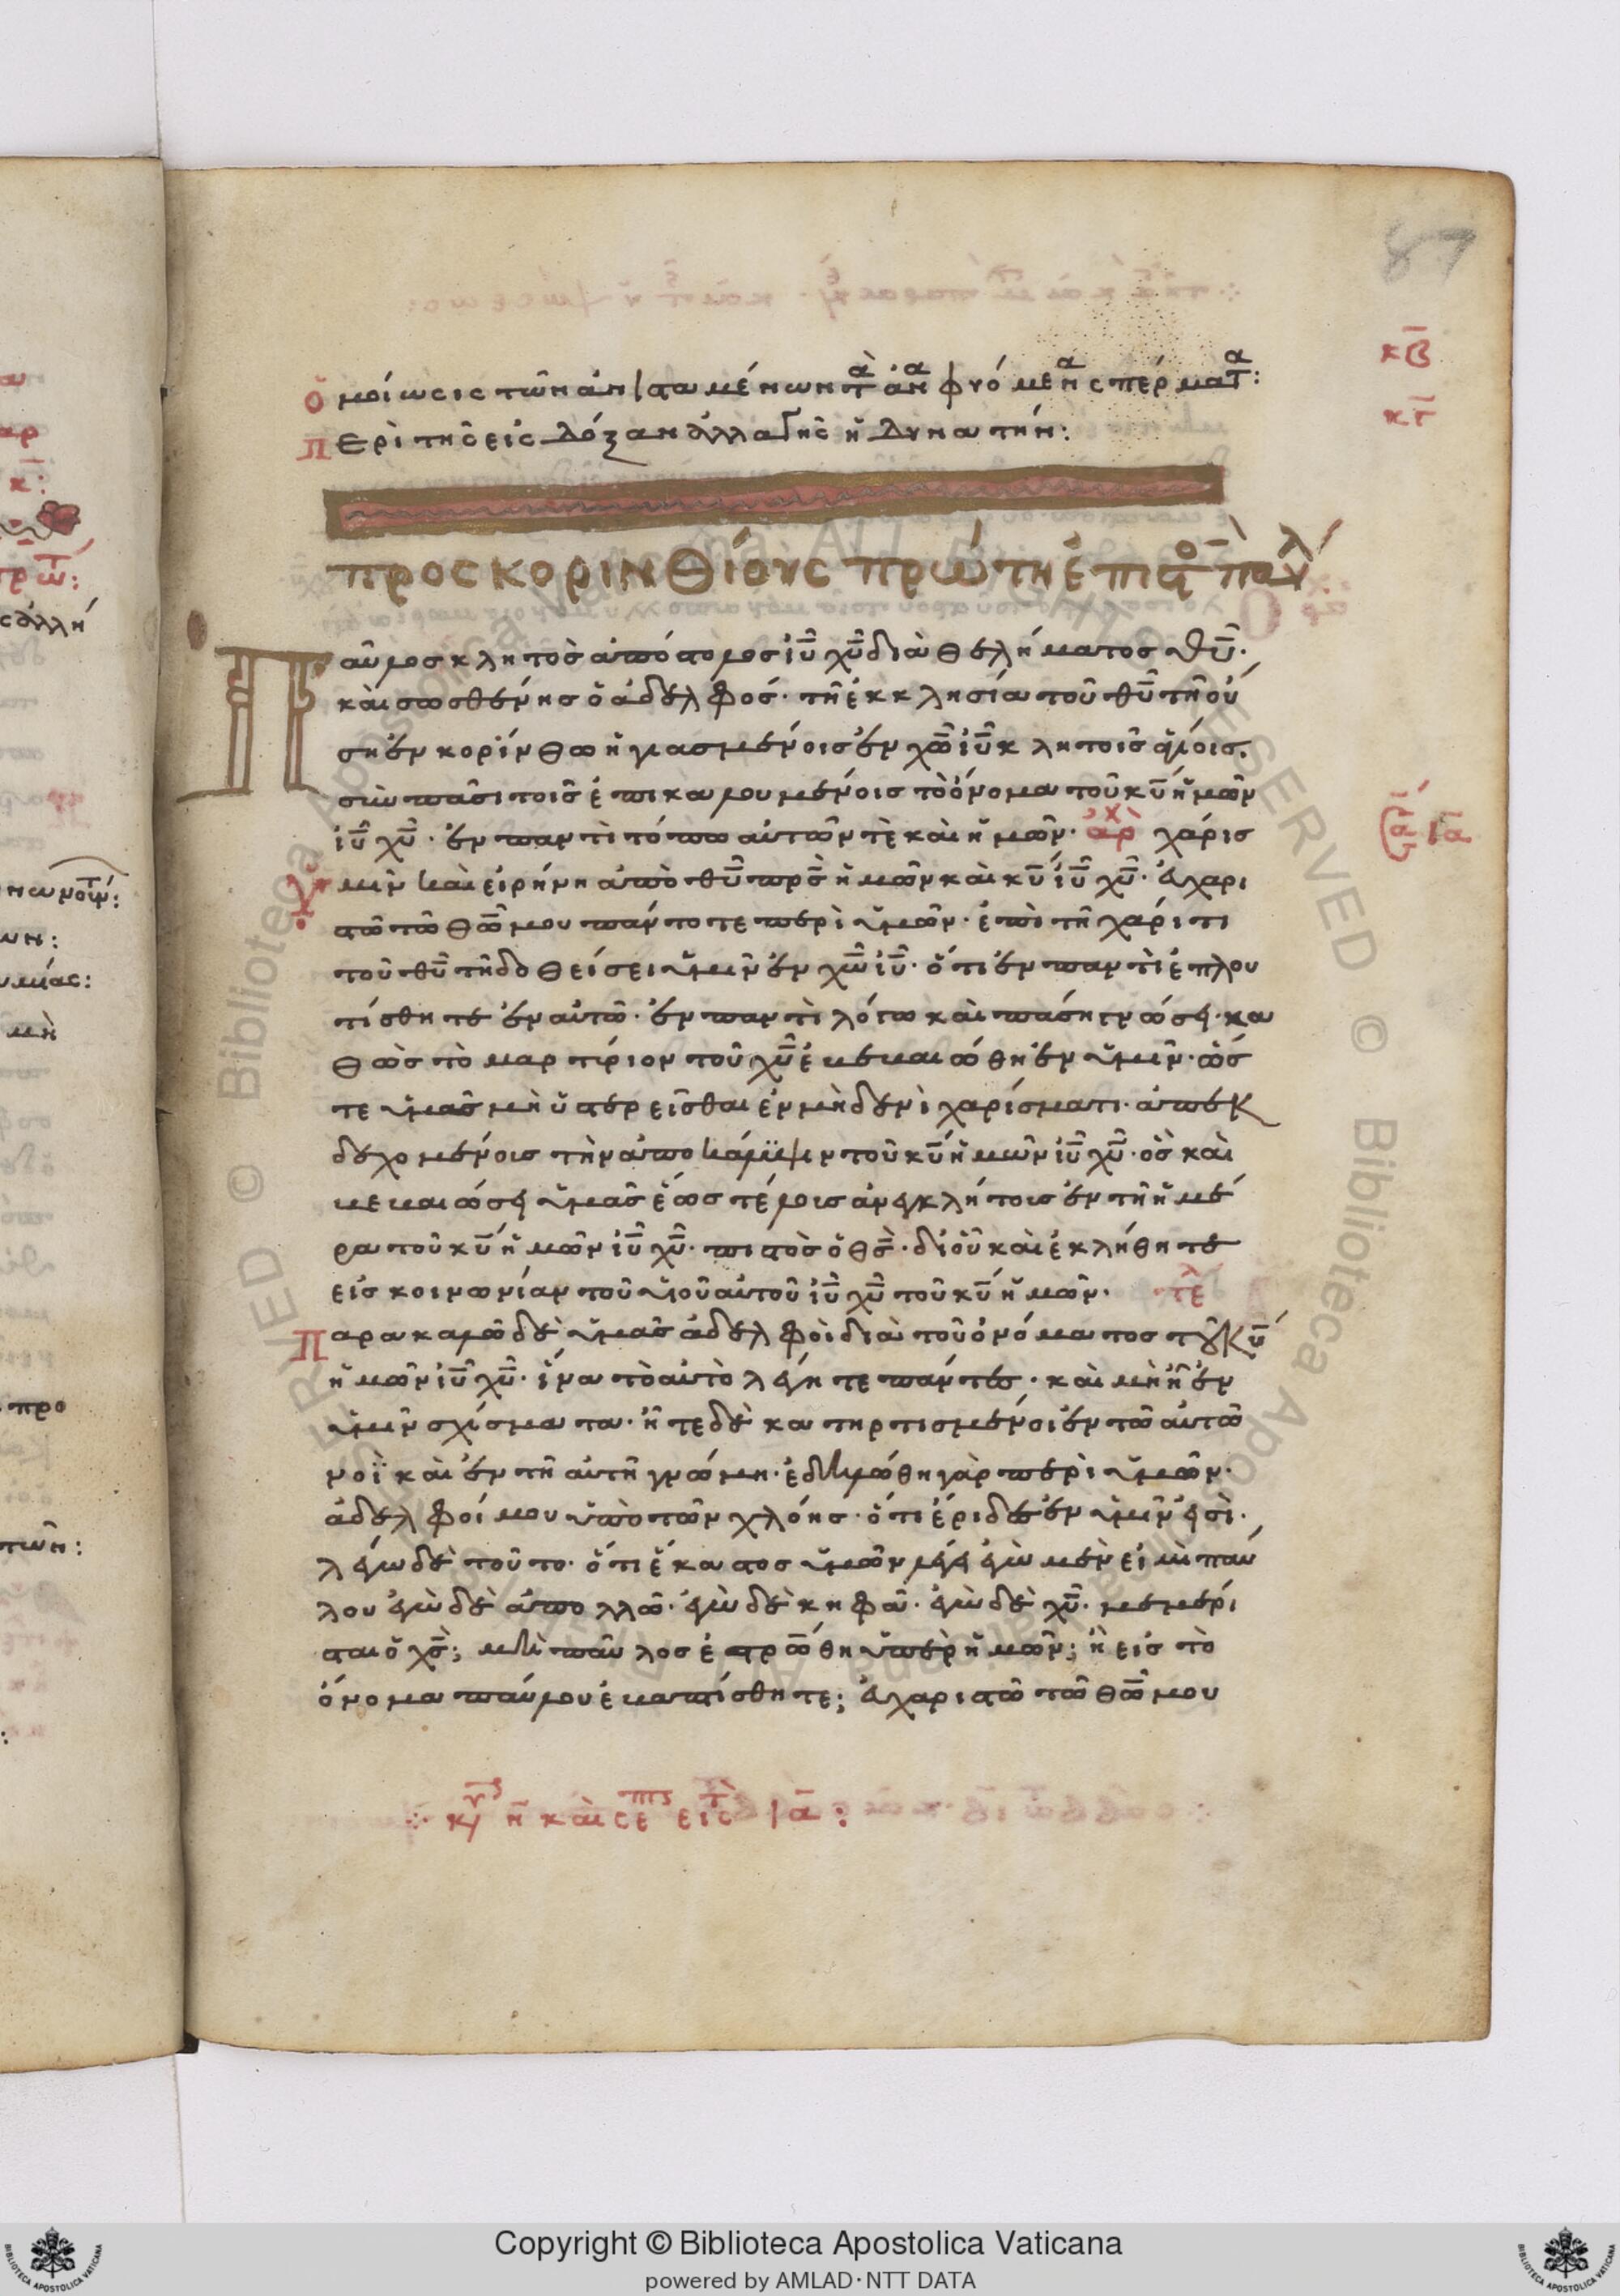 87
ὁμοίωσις τῶν ἀνισταμένων τὰ ἀνα φυόμενα σπέρματα: κβ
Περὶ τῆς εἰς δόξαν ἀλλαγῆς ἢ δυνατὴν: κγ
προς κορινθίους πρώτη ἐπιστο παυλ
Παῦλος κλητὸς ἀπόστολος ιυ χυ διὰ θελήματος θυ·
καὶ σωσθένης ὁ ἀδελφός· τῆ ἐκκλησία τοῦ θυ τῆ οὔ
ση ἐν κορίνθω ἡγιασμένοις ἐν χω ιυ κλητοῖς ἁγίοις.
σὺν πᾶσι τοῖς ἐπικαλουμένοις τὸ ὄνομα τοῦ κυ ἡμῶν
ιυ χυ· ἐν παντὶ τόπω αὐτῶν τὲ καὶ ἡμῶν· ἀρχ χάρις
ὑμῖν καὶ εἰρήνη ἀπὸ θυ πρς ἡμῶν καὶ κυ ιυ χυ· εὐχαρι
στῶ τῶ θω μου πάντοτε περὶ ὑμῶν· ἐπὶ τῆ χάριτι
τοῦ θυ τῆ δοθείσει ὑμῖν ἐν χω ιυ· ὅτι ἐν παντὶ ἐπλου
τίσθητε ἐν αὐτῶ· ἐν παντὶ λόγω καὶ πάση γνώσει· κα
θὼς τὸ μαρτύριον τοῦ χυ ἐβεβαιώθη ἐν ὑμῖν· ὥσ
τε ὑμᾶς μὴ ὑστερεῖσθαι ἐν μηδενὶ χαρίσματι· ἀπεκ
δεχομένοις τὴν ἀποκάλυψιν τοῦ κυ ἡμῶν ιυ χυ· ὃς καὶ
βεβαιώσει ὑμᾶς ἕως τέλους ἀνεγκλήτους ἐν τῆ ἡμέ
ρα τοῦ κυ ἡμῶν ιυ χυ· πιστὸς ὁ θς· δι οὗ καὶ ἐκλήθητε
εἰς κοινωνίαν τοῦ υἱοῦ αὐτοῦ ιυ χυ τοῦ κυ ἡμῶν· τελ
Παρακαλῶ δὲ ὑμᾶς ἀδελφοὶ διὰ τοῦ ὀνόματος τοῦ κυ
ἡμῶν ιυ χυ· ἵνα τὸ αὐτὸ λέγητε πάντες· καὶ μὴ ἦ ἐν
ὑμῖν σχίσματα· ἦτε δὲ κατηρτισμένοι ἐν τῶ αὐτῶ
νοῒ καὶ ἐν τῆ αὐτῆ γνώμη· ἐδηλώθη γὰρ περὶ ὑμῶν·
ἀδελφοί μου ὑπὸ τῶν χλόης· ὅτι ἔριδες ἐν ὑμῖν εἰσὶ·
λέγω δὲ τοῦτο· ὅτι ἕκαστος ὑμῶν λέγει ἐγὼ μὲν εἰμὶ παύ
λου ἐγὼ δὲ ἀπολλῶ· ἐγὼ δὲ κηφᾶ· ἐγὼ δὲ χυ· μεμέρι
σται ὁ χς; μὴ παῦλος ἐστρώθη ὑπὲρ ἡμῶν; ἢ εἰς τὸ
ὄνομα παύλου ἐβαπτίσθητε; εὐχαριστῶ τῶ θω μου